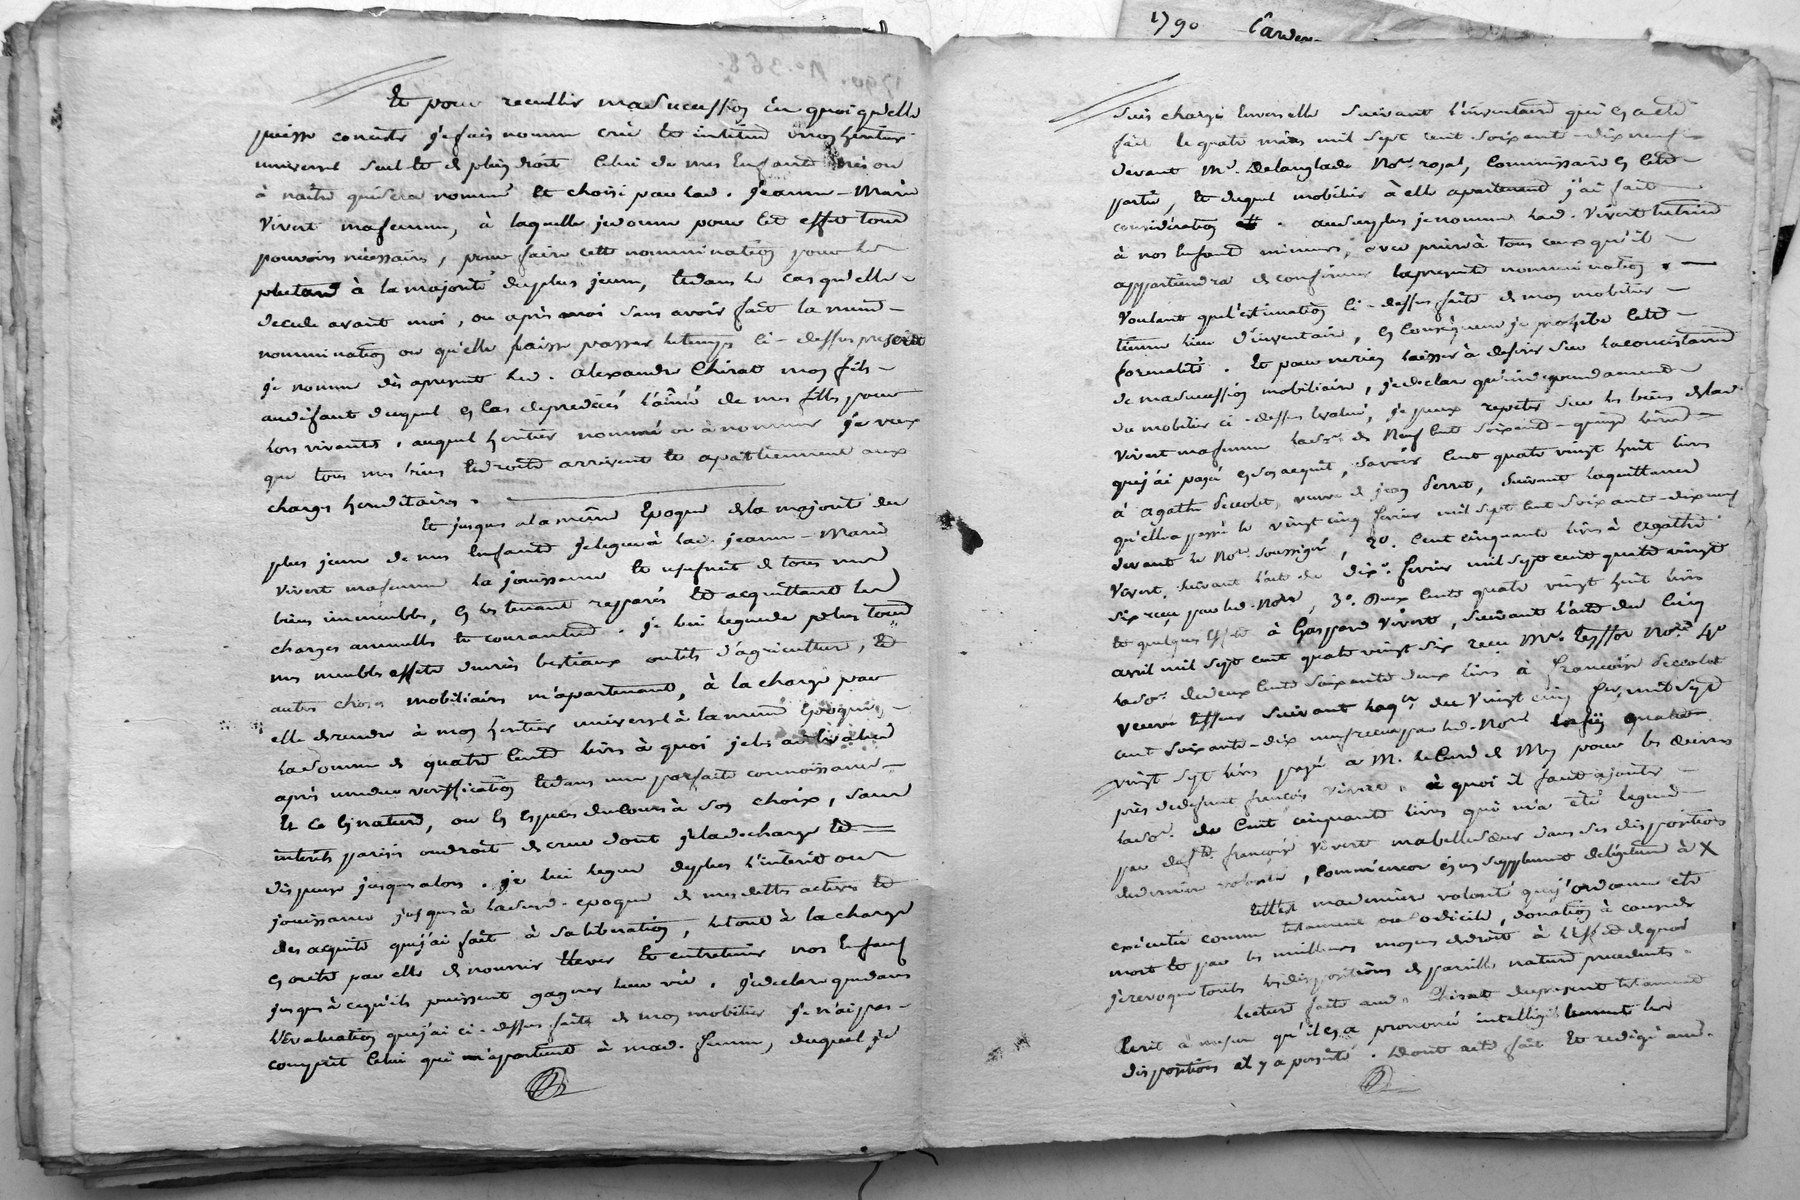 1790
Et pour recullir ma sucession en quoi qu'elle
puisse consister je fais nomme crée et institue mon héritier
universel seul et de plein droit celui de mes Enfants nés ou
à naitre qui sera nommé et choisi par lad. Jeanne-Marie
Vivert ma femme, à laquelle je donne pour cet effet tous
pouvoirs nécessaires, pour faire cette nommination pour le
plutard à la majorité du plus jeune, et dans le cas qu'elle
decede avant moi, ou après moi sans avoir fait la
nommination ou qu'elle laisse passer le temps ci-dessus prescrit
je nomme dès apresent led. Alexandre Chirat mon fils
audifaut duquel en cas de predécés l'aîné de mes fils pour
lors vivants, auquel heritier nommé ou à nommer je veux
que tous mes biens et droits arrivent et apartiennent aux
charges hereditaires.
Et jusques a la même Epoque de la majorité du
plus jeune de mes Enfants je legue à lad. jeanne-Marie
Vivert ma femme la jouissance et usufruit de tous mes
biens immeubles, en les tenant repparés et acquittant les
charges annuelles et courantes. je lui legue de plus tous
mes meubles effets denrées bestiaux outils d'agriculture, et
autres choses mobiliaires m'apartenant, à la charge par
elle de rendre à mon heritier universel à la même Epoque
la somme de quatre cents livres à quoi je les ai évalués
après vérification et dans une parfaite connoissance
Et ce En nature, ou En Especes du cours à son choix, sans
interêts parisis ou droit de crue dont je la decharge et
dispense jusqu'alors. je lui legue de plus l'interêt ou
jouissance jusqu'à lad. epoque de mes dettes actives et
des acquits que j'ai fait à sa liberation, le tout à la charge
En outre par elle de nourrir Elever et entretenir nos Enfans
jusqu'à ce qu'ils puissent gagner leur vie. je declare que dans
l'Evaluation que j'ai ci-dessus faite de mon mobilier je n'ai pas
compris celui qui apartient à mad. femme, duquel je
suis chargé Envers elle suivant l'inventaire qui En a eté
fait le quatre mars mil sept cent soixante-dix neuf
devant Me. Delanglade Nore. royal, Commissaire En cette
partie, et duquel mobilier à elle apartenant j'ai fait
considération. au surplus je nomme lad. Vivert tutrice
à nos Enfans mineurs, avec priere à tous ceux qu'il
appartiendra de confirmer la presente nommination.
Voulant que l'estimation ci-dessus faite de mon mobilier
tienne lieu d'inventaire, En conséquence je prohibe cette
formalité. Et pour ne rien laisser à desirer sur la consistance
de ma sucession mobiliaire, je declare qu'independamment
du mobilier ci-dessus évalué, je peux repeter sur les biens de lad.
Vivert ma femme la som. de Neuf cent soixante-quinze livres
que j'ai payé En son acquit, Savoir Cent quatre vingt huit livres
à Agathe Peccolet, veuve de jean Perret, suivant la quittance
qu'elle a passé le vingt cinq fevrier mil sept cent soixante-dix neuf
devant le Nore. soussigné, 2°. Cent cinquante livres à Agathe
Vivert, suivant l'acte du dix fevrier mil sept cent quatre vingt
six reçu par led. Nore, 3°. Deux cents quatre vingt huit livres
et quelques effets à Gaspard Vivert, suivant l'acte du cinq
avril mil sept cent quatre vingt six recu Me. Teyssor Nore. 4°
la som. de deux cents soixante deux livres à françoise Peccolet
veuve suivant la qce. du vingt cinq fev. mil sept
cent soixante-dix neuf recue par led. Nore Enfin quatre
vingt sept livres payés a M. le Curé de pour les deniers
près de defunt françois Vivert, à quoi il faut ajouter
la som. de Cent cinquante livres qui m'a été leguée
par deft. françoise Vivert ma belle soeur dans ses dispositions
de derniere volonté, Comme encor en un supplement de legitime à X
telle est ma derniere volonté que j'ordonne etre
exécutée comme testament ou codicile, donation à cause de
mort et par les meilleurs moyens de droit à l'effet de quoi
je revoque toutes les dispositions de pareille nature precedentes.
Lecture faite aud. Chirat du present testament
Ecrit à mesure qu'il en a prononcé intelligiblement les
dispositions il y a persisté. Dont acte fait Et redigé aud.